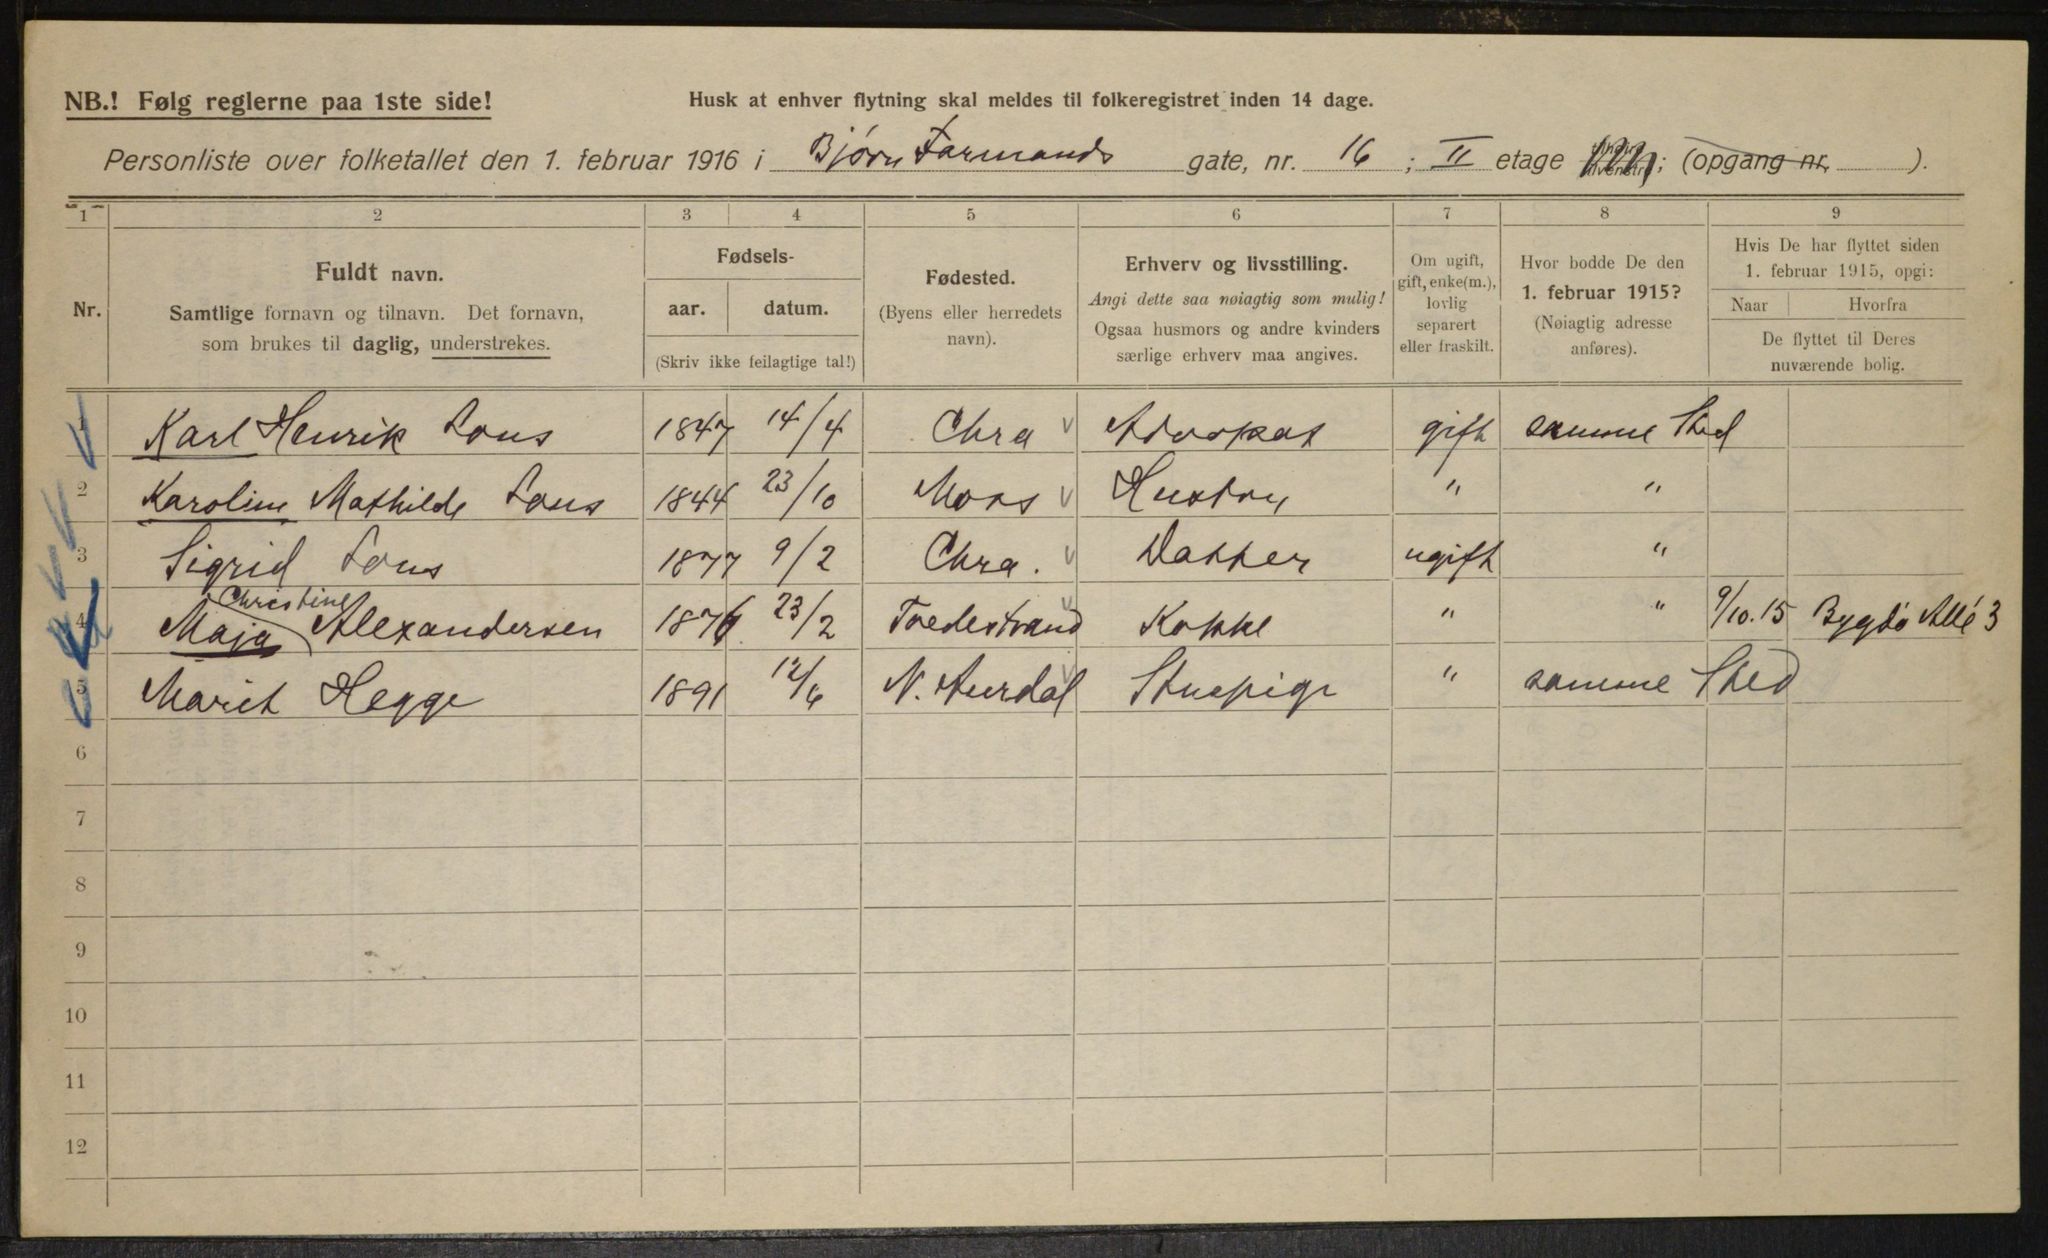 NB.! Følg reglerne paa 1ste side!
Husk at enhver flytning skal meldes til folkeregistret inden 14 dage.
Personliste over folketallet den 1. februar 1916 i Bjørn Farmands gate, nr. 16; II etage ; (opgang nr. ).
1 2 3 4 5 6 7 8 9
Nr.
Fuldt navn.
Samtlige fornavn og tilnavn. Det fornavn,
som brukes til daglig, understrekes.
Fødsels-
aar. datum.
(Skriv ikke feilagtige tal!)
Fødested.
(Byens eller herredets
navn).
Erhverv og livsstilling.
Angi dette saa nøiagtig som mulig!
Ogsaa husmors og andre kvinders
særlige erhverv maa angives.
Om ugift,
gift, enke(m.),
lovlig
separert
eller fraskilt.
Hvor bodde De den
1. februar 1915?
(Nøiagtig adresse
anføres).
Hvis De har flyttet siden
1. februar 1915, opgi:
Naar Hvorfra
De flyttet til Deres
nuværende bolig.
1 Karl Henrik Lous 1847 14/4 Chra Advokat gift samme Sted
2 Karoline Mathilde Lous 1844 23/10 Moss Hustru " "
3 Sigrid Lous 1877 9/2 Chra. Datter ugift "
Christine
4 Maja Alexandersen 1876 23/2 Tvedestrand Kokke " " 9/10.15 Bygdø Allé 3
5 Marit Hegge 1891 12/6 N. Aurdal Stuepige " samme Sted
6
7
8
9
10
11
12